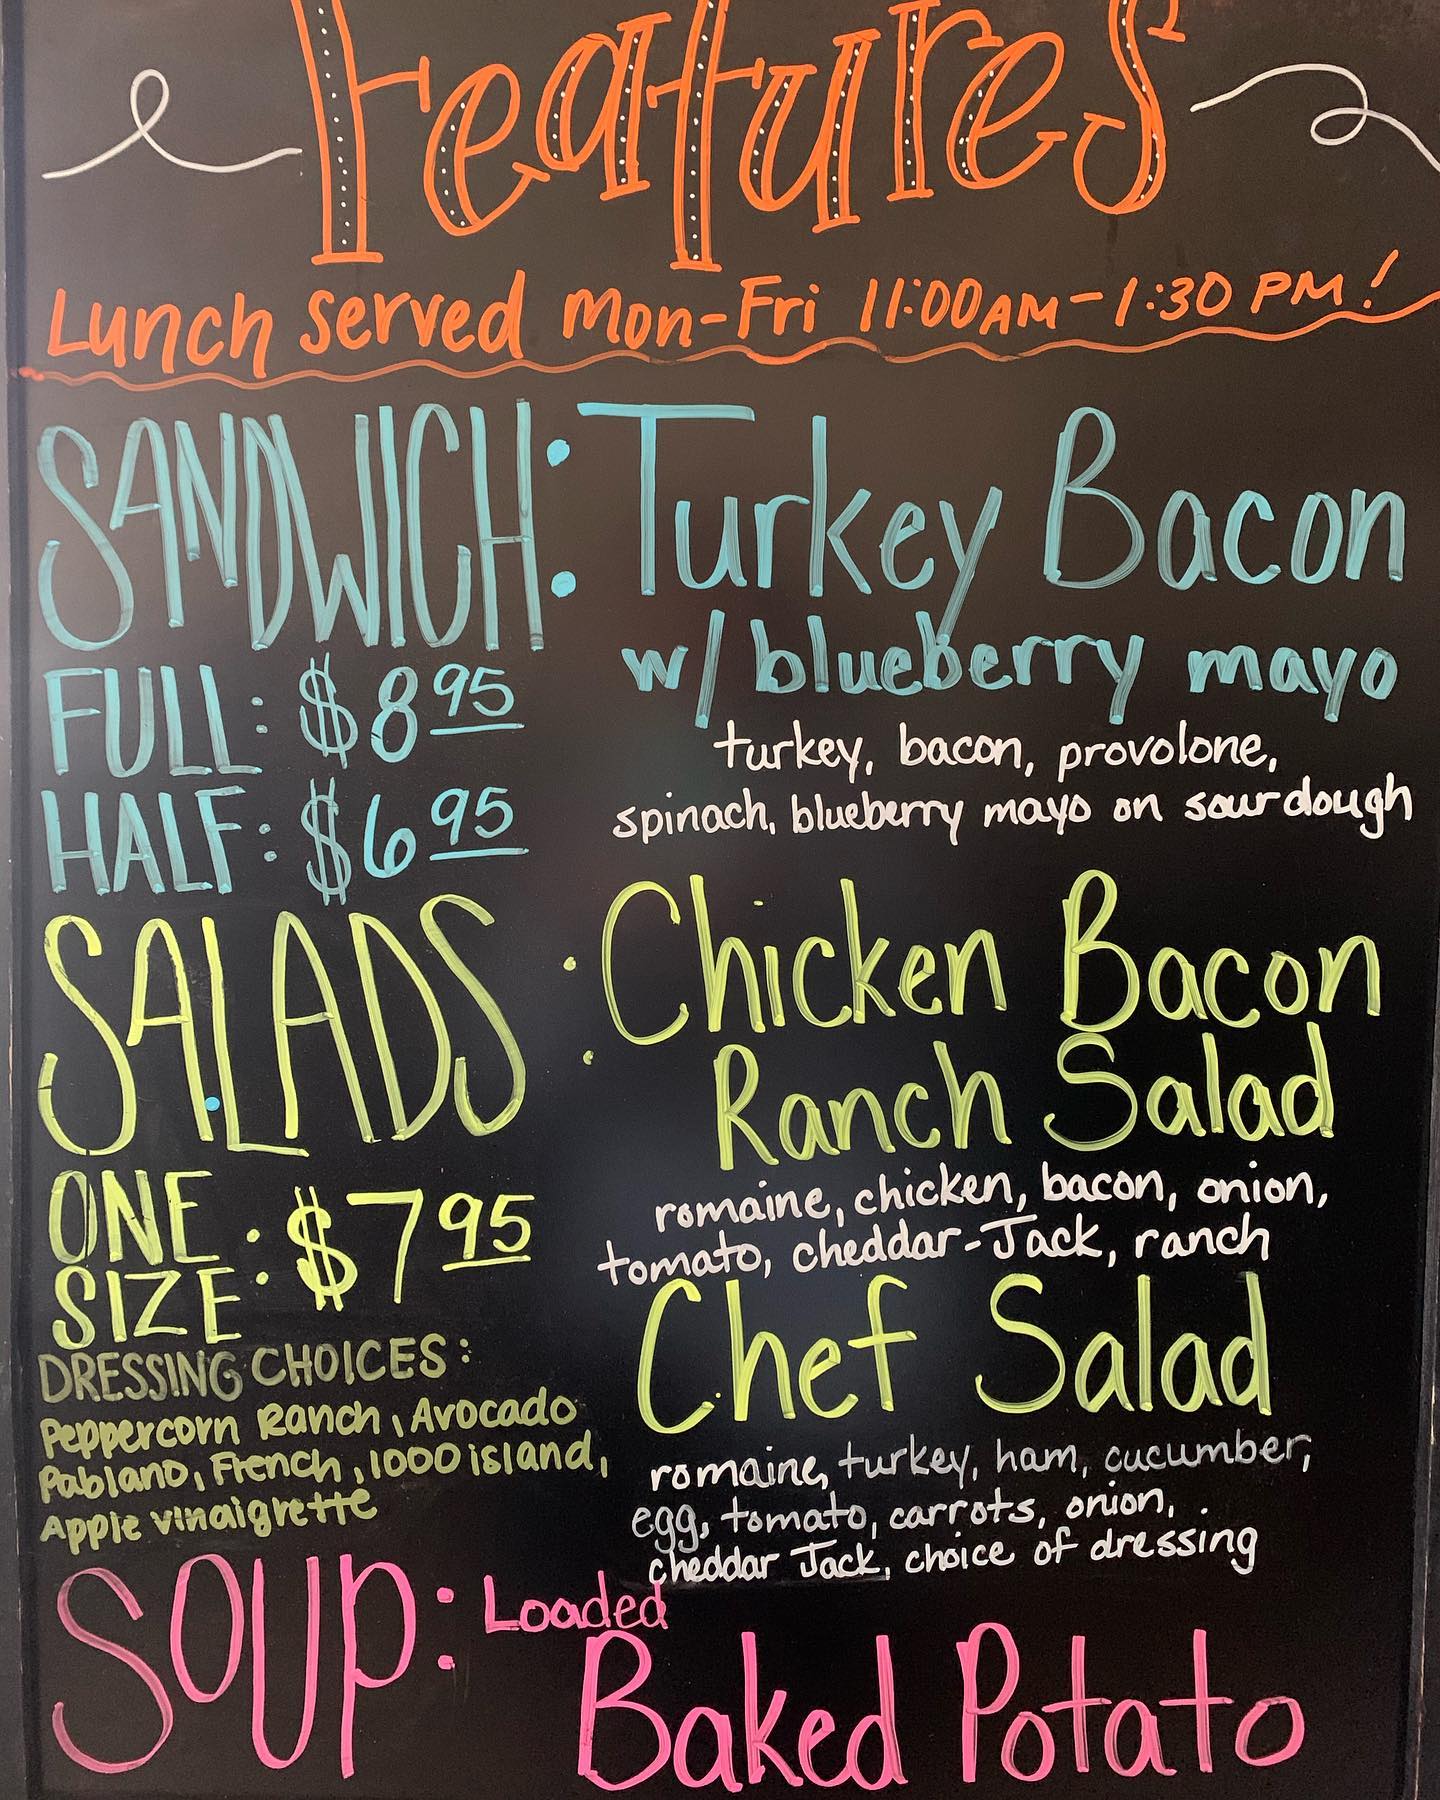 Features
Lunch served Mon-Fri 11:00AM-1:30 PM!
SANDWICH: Turkey Bacon
w/ blueberry mayo
FULL: $8.95
turkey, bacon, provolone,
HALF: $6.95
spinach, blueberry mayo on sourdough
SALADS: Chicken Bacon
Ranch Salad
ONE SIZE: $7.95
romaine, chicken, bacon, onion,
tomato, cheddar-Jack, ranch
Chef Salad
DRESSING CHOICES:
Peppercorn Ranch, Avocado
Pablano, French, 1000 island,
Apple vinaigrette
romaine, turkey, ham, cucumber,
egg, tomato, carrots, onion,
cheddar Jack, choice of dressing
SOUP: Loaded
Baked Potato